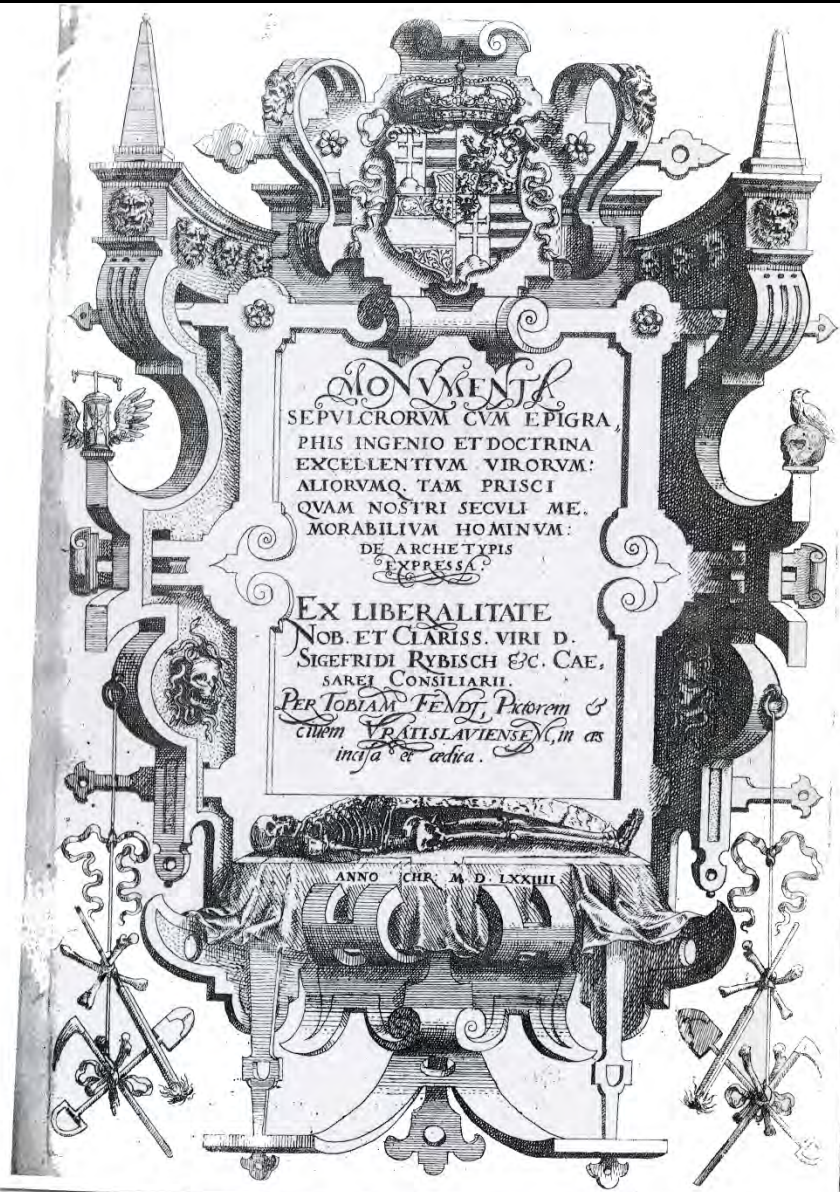 MONVMENTA
SEPVLCRORVM CVM EPIGRA,
PHIS INGENIO ET DOCTRINA
EXCELLENTIVM VIRORVM:
ALIORVMQ. TAM PRISCI
QVAM NOSTRI SECVLI ME,
MORABILIVM HOMINVM:
DE ARCHETYPIS
EXPRESSA.
EX LIBERALITATE
NOB. ET CLARISS. VIRI D.
SIGEFRIDI RYBISCH &C. CAE,
SAREI CONSILIARII.
PER TOBIAM FENDT, Pictorem &
ciuem VRATISLAVIENSEM, in æs
incisa et ædita.
ANNO CHR: M. D. LXXIIII